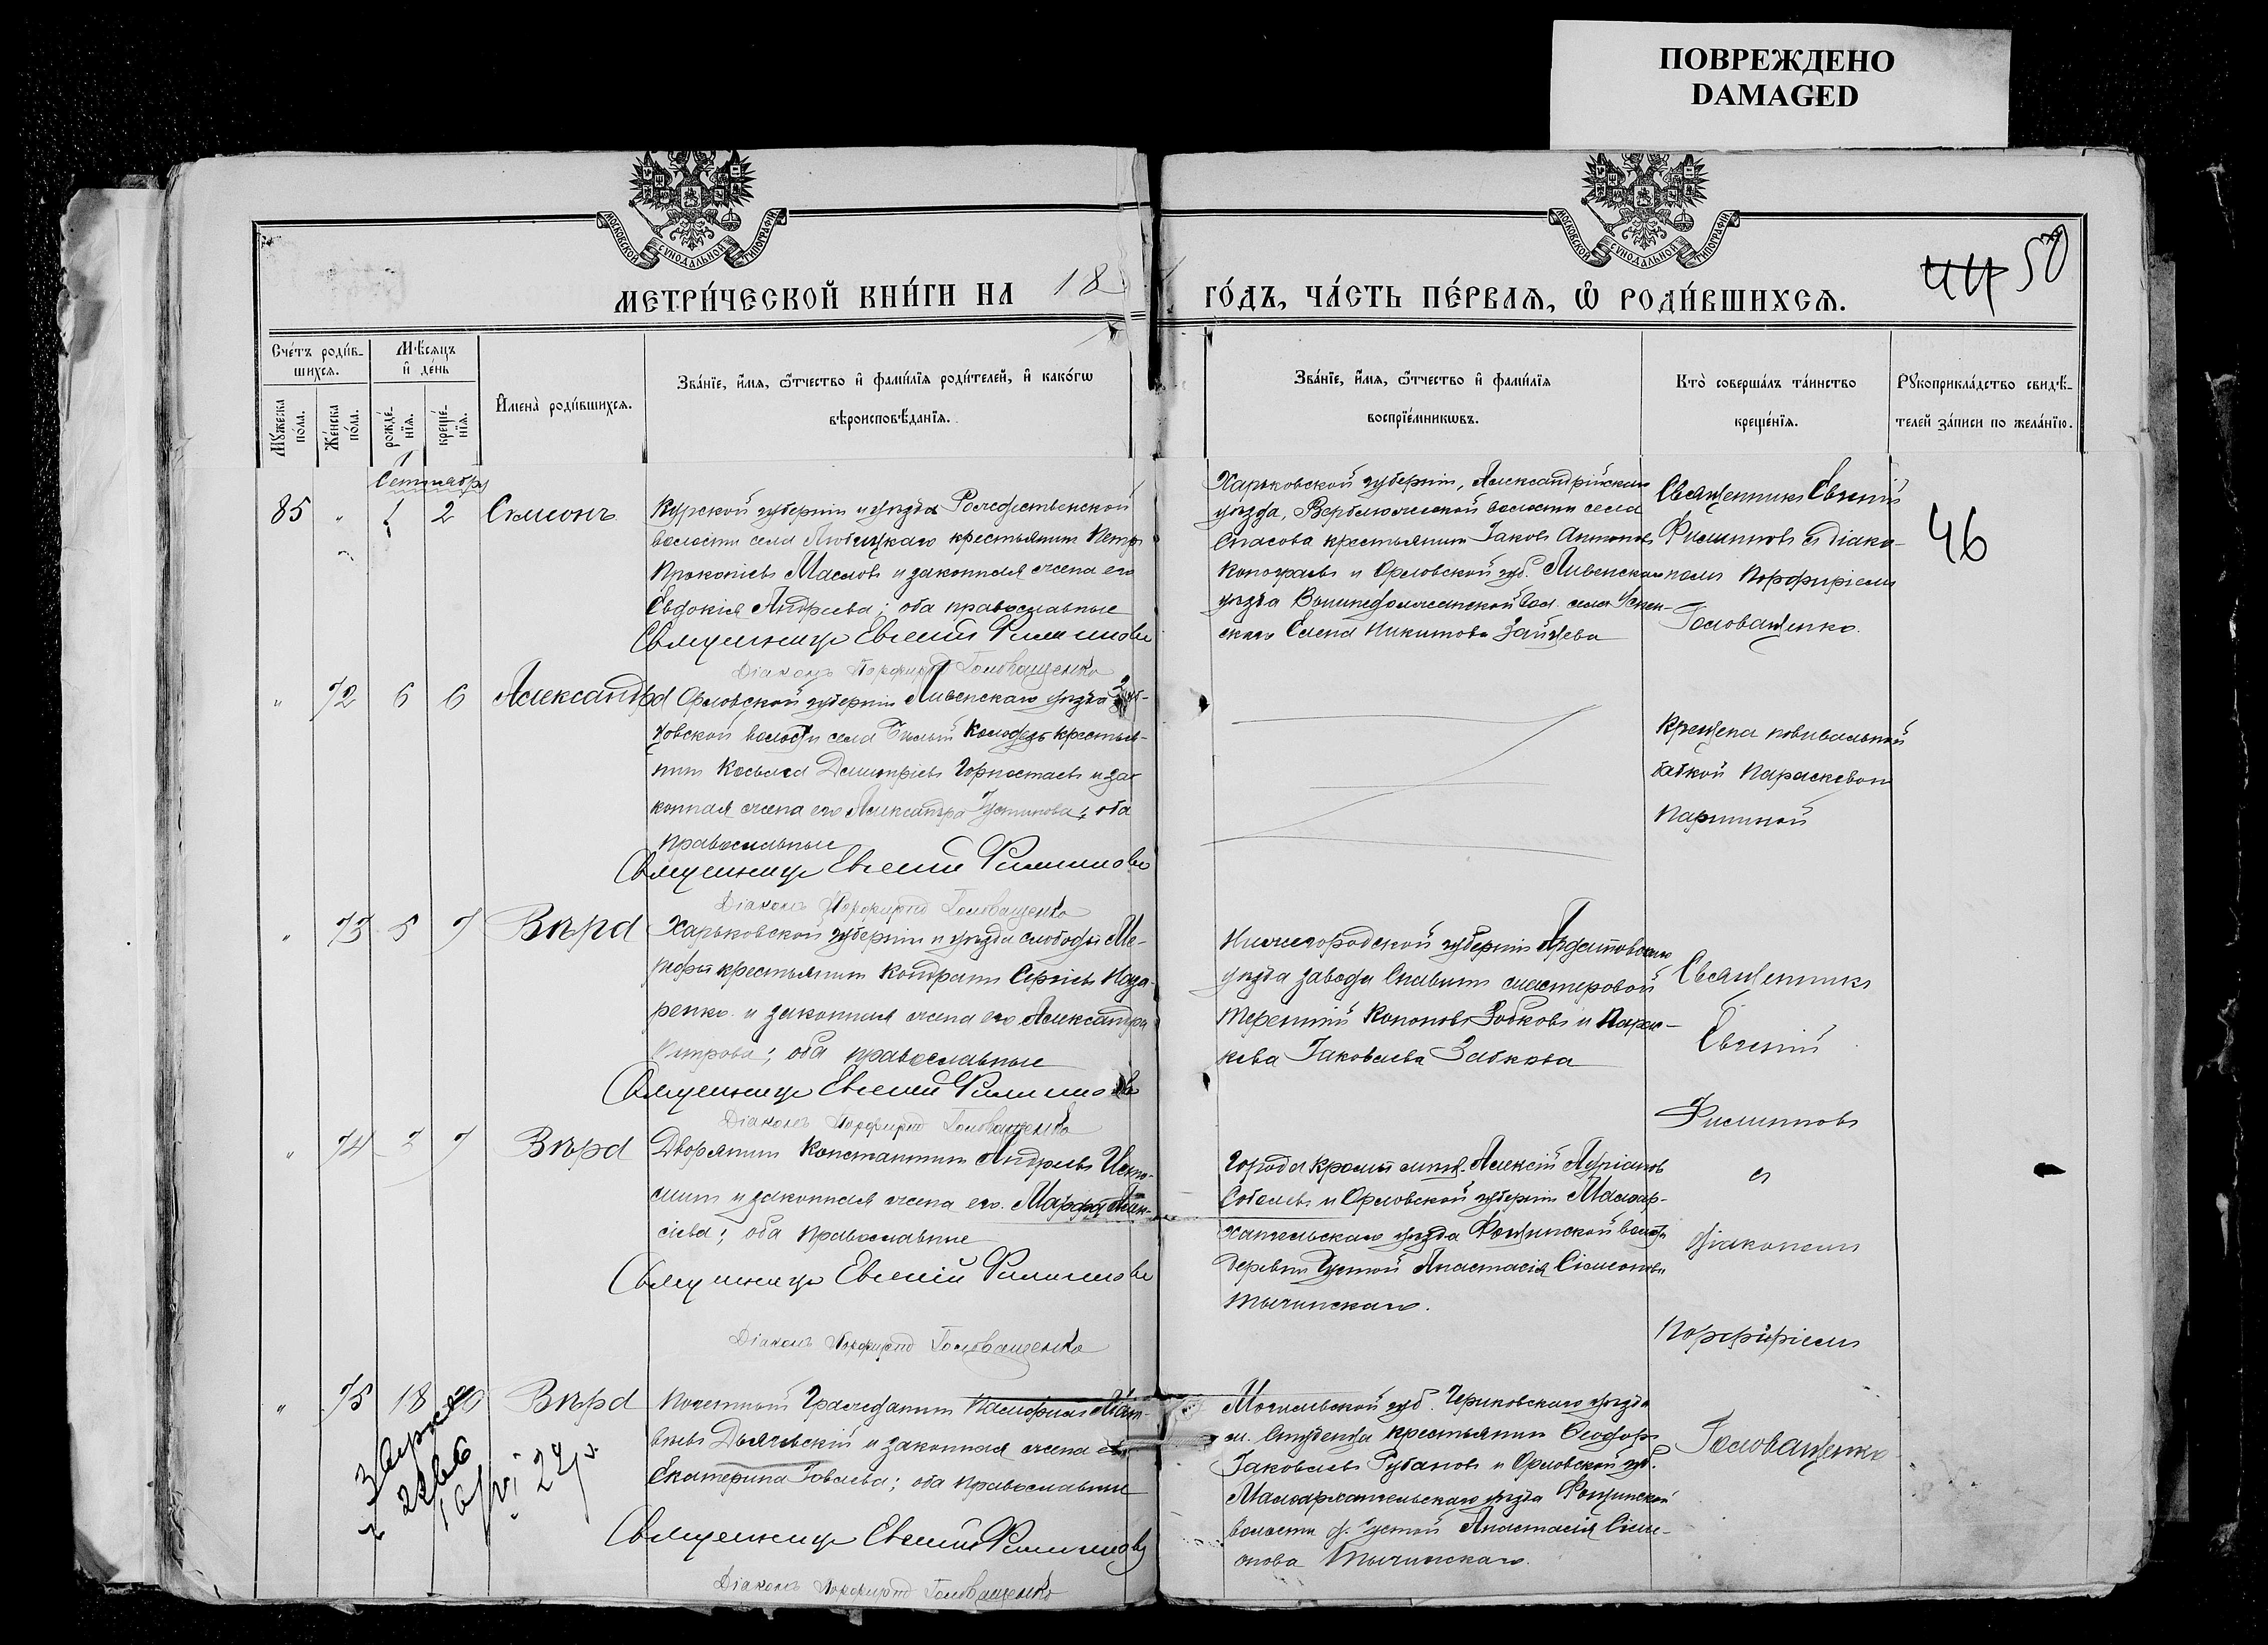 ПОВРЕЖДЕНО
DAMAGED
МОСКОВСКОЙ СУНОДАЛЬНОЙ ТИПОГРАФІИ
МОСКОВСКОЙ СУНОДАЛЬНОЙ ТИПОГРАФІИ
44 50
МЕТРИ́ЧЕСКОЙ КНИ́ГИ НА 18 ГО́ДЪ, ЧА́СТЬ ПЕ́РВАѦ, Ѡ҆ РОДИ́ВШИХСѦ.
Сче́тъ роди́в-
шихсѧ.
Мꙋ́жеска по́ла.
Же́нска по́ла.
Мѣ́сѧцъ
и҆ де́нь
рожде́-
нїѧ.
креще́-
нїѧ.
И҆мена̀ роди́вшихсѧ.
Зва́нїе, и҆́мѧ, ѻ҆́тчество и҆ фами́лїѧ роди́телей, и҆ како́гѡ
вѣроисповѣ́данїѧ.
Зва́нїе, и҆́мѧ, ѻ҆́тчество и҆ фами́лїѧ
воспрїе́мникѡвъ.
Кто̀ соверша́лъ та́инство
креще́нїѧ.
Рꙋкоприкла́дство свидѣ́-
телей за́писи по жела́нїю.
Сентябрь
85 " 1 2 Симеонъ
Курской губерніи и уѣзда Рождественской
волости села Любицкаго крестьянинъ Петръ
Прокопіевъ Масловъ и законная жена его
Евдокія Андреева; оба православные
Священникъ Евгеній Филипповъ
Діаконъ Порфирій Головащенко
Харьковской губерніи, Александрійскаго
уѣзда, Верблюжской волости села
Спасова крестьянинъ Іаковъ Антоновъ
и Орловской губ. Ливенскаго
уѣзда вол. села Успен-
скаго Елена Никитова Зайцева
Священникъ Евгеній
Филипповъ съ діако-
номъ Порфиріемъ
Головащенко.
46
" 72 6 6 Александра
Орловской губерніи Ливенскаго уѣзда
волости села Бѣлый Колодезь крестья-
нинъ Косьма Димитріевъ Горностаевъ и за-
конная жена его Александра Іустинова; оба
православные
Священникъ Евгеній Филипповъ
Діаконъ Порфирій Головащенко
Крещена повивальной
бабкой Параскевою
" 73 5 7 Вѣра
Харьковской губерніи и уѣзда слободы Ме-
рефы крестьянинъ Кондратъ Сергіевъ Наза-
ренко и законная жена его Александра
Петрова; оба православные
Священникъ Евгеній Филипповъ
Діаконъ Порфирій Головащенко
Нижегородской губерніи Ардатовскаго
уѣзда завода мастеровой
Терентій Кононовъ Зобковъ и Парас-
кева Іаковлева Забкова
Священникъ
Евгеній
Филипповъ
съ
діакономъ
Порфиріемъ
Головащенко
" 74 2 7 Вѣра
Дворянинъ Константинъ Андреевъ
и законная жена его Марфа Алек-
сіева; оба православные
Священникъ Евгеній Филипповъ
Діаконъ Порфирій Головащенко
Города Кромы мѣщ. Алексій Адріановъ
Соболевъ и Орловской губерніи Малоар-
хангельскаго уѣзда волости
деревни Анастасія Симеонова
" 75 18 20 Вѣра
Почетный Гражданинъ
и законная жена его
Екатерина Іовлева; оба православные
Священникъ Евгеній Филипповъ
Діаконъ Порфирій Головащенко
Могилевской губ. Чериковскаго уѣзда
м. крестьянинъ Ѳеодоръ
Іаковлевъ Рубановъ и Орловской губ.
Малоархангельскаго уѣзда
волости д. Анастасія Симе-
онова